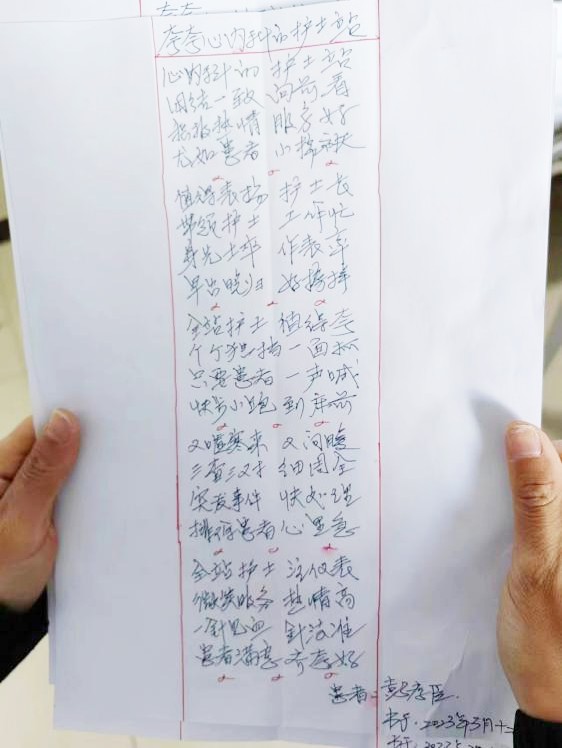 夸夸心内科的护士站
心内科的 护士站
团结一致 向前看
积极热情 服务好
尤如患者 小棉袄
值得表扬 护士长
带领护士 工作忙
身先士卒 作表率
早出晚归 好榜样
全站护士 值得夸
个个独挡一面抓
只要患者 一声喊
快步小跑到床前
又嘘寒来 又问暖
三查三对 细周全
突发事件 快处理
排除患者心里急
全站护士 注仪表
微笑服务 热情高
一针见血 针法准
患者满意 齐声好
患者：彭彦臣
书于2023年3月十